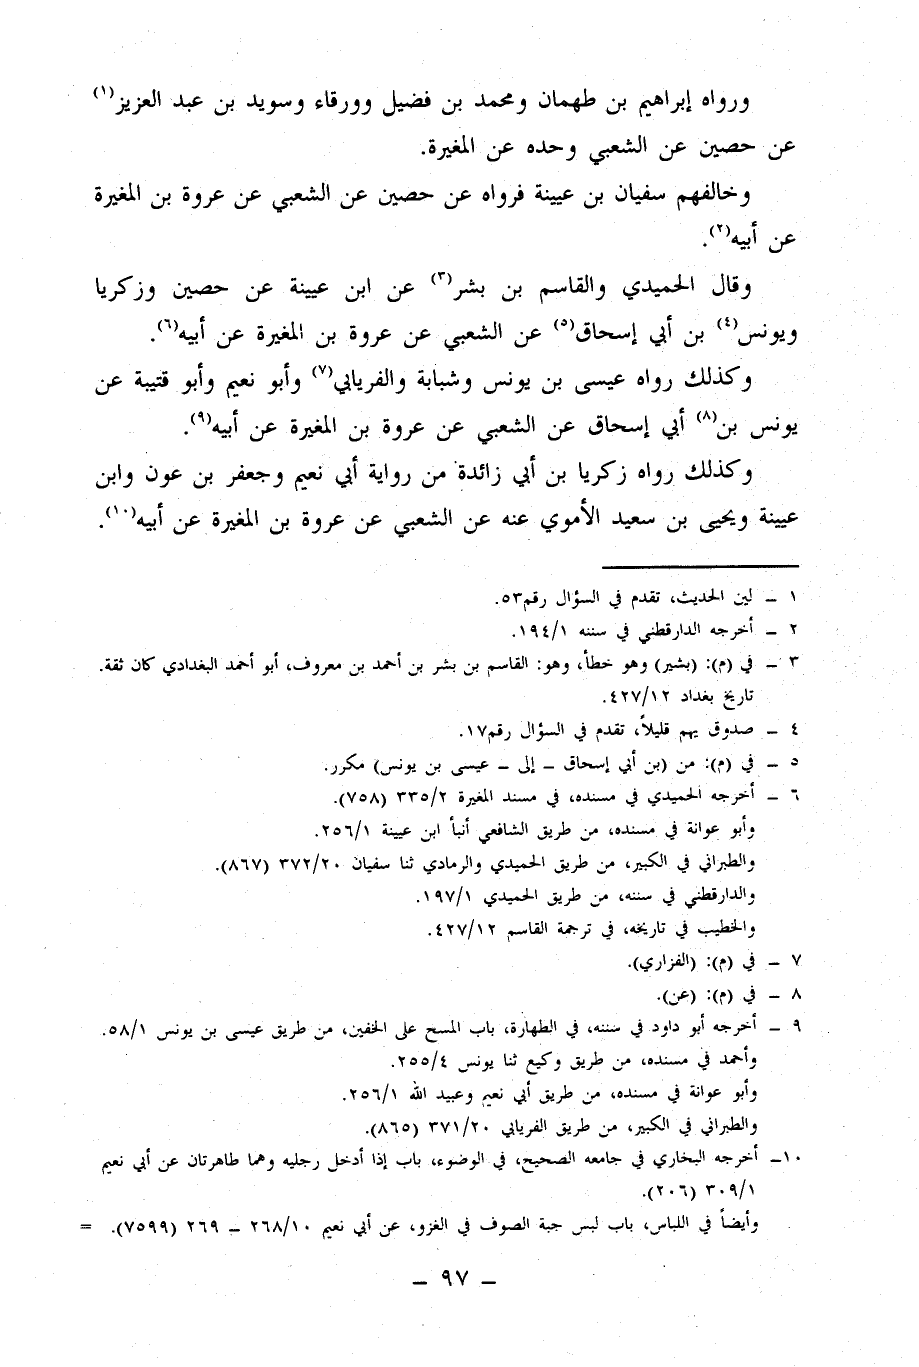 ورواه إبراهيم بن طهمان ومحمد بن فضيل وورقاء وسويد بن عبد العزيز(١)
عن حصين عن الشعبي وحده عن المغيرة.
وخالفهم سفيان بن عيينة فرواه عن حصين عن الشعبي عن عروة بن المغيرة
عن أبيه(٢).
وقال الحميدي والقاسم بن بشر(٣) عن ابن عيينة عن حصين وزكريا
ويونس(٤) بن أبي إسحاق(٥) عن الشعبي عن عروة بن المغيرة عن أبيه(٦).
وكذلك رواه عيسى بن يونس وشبابة والفريابي(٧) وأبو نعيم وأبو قتيبة عن
يونس بن(٨) أبي إسحاق عن الشعبي عن عروة بن المغيرة عن أبيه(٩).
وكذلك رواه زكريا بن أبي زائدة من رواية أبي نعيم وجعفر بن عون وابن
عيينة ويحيى بن سعيد الأموي عنه عن الشعبي عن عروة بن المغيرة عن أبيه(١٠).
١ ـ لين الحديث، تقدم في السؤال رقم٥٣.
٢ ـ أخرجه الدارقطني في سننه ١/١٩٤.
٣ ـ في (م): (بشير) وهو خطأ، وهو: القاسم بن بشر بن أحمد بن معروف، أبو أحمد البغدادي كان ثقة.
تاريخ بغداد ١٢/٤٢٧.
٤ ـ صدوق يهم قليلاً، تقدم في السؤال رقم١٧.
٥ ـ في (م): من (بن أبي إسحاق ـ إلى ـ عيسى بن يونس) مكرر.
٦ ـ أخرجه الحميدي في مسنده، في مسند المغيرة ٢/٣٣٥ (٧٥٨).
وأبو عوانة في مسنده، من طريق الشافعي أنبأ ابن عيينة ١/٢٥٦.
والطبراني في الكبير، من طريق الحميدي والرمادي ثنا سفيان ٢٠/٣٧٢ (٨٦٧).
والدارقطني في سننه، من طريق الحميدي ١/١٩٧.
والخطيب في تاريخه، في ترجمة القاسم ١٢/٤٢٧.
٧ ـ في (م): (الفزاري).
٨ ـ في (م): (عن).
٩ ـ أخرجه أبو داود في سننه، في الطهارة، باب المسح على الخفين، من طريق عيسى بن يونس ١/٥٨.
وأحمد في مسنده، من طريق وكيع ثنا يونس ٤/٢٥٥.
وأبو عوانة في مسنده، من طريق أبي نعيم وعبيد الله ١/٢٥٦.
والطبراني في الكبير، من طريق الفريابي ٢٠/٣٧١ (٨٦٥).
١٠ـ أخرجه البخاري في جامعه الصحيح، في الوضوء، باب إذا أدخل رجليه وهما طاهرتان عن أبي نعيم
١/٣٠٩ (٢٠٦).
وأيضاً في اللباس، باب لبس جبة الصوف في الغزو، عن أبي نعيم ١٠/٢٦٨ ـ ٢٦٩ (٧٥٩٩). =
ـ ٩٧ ـ